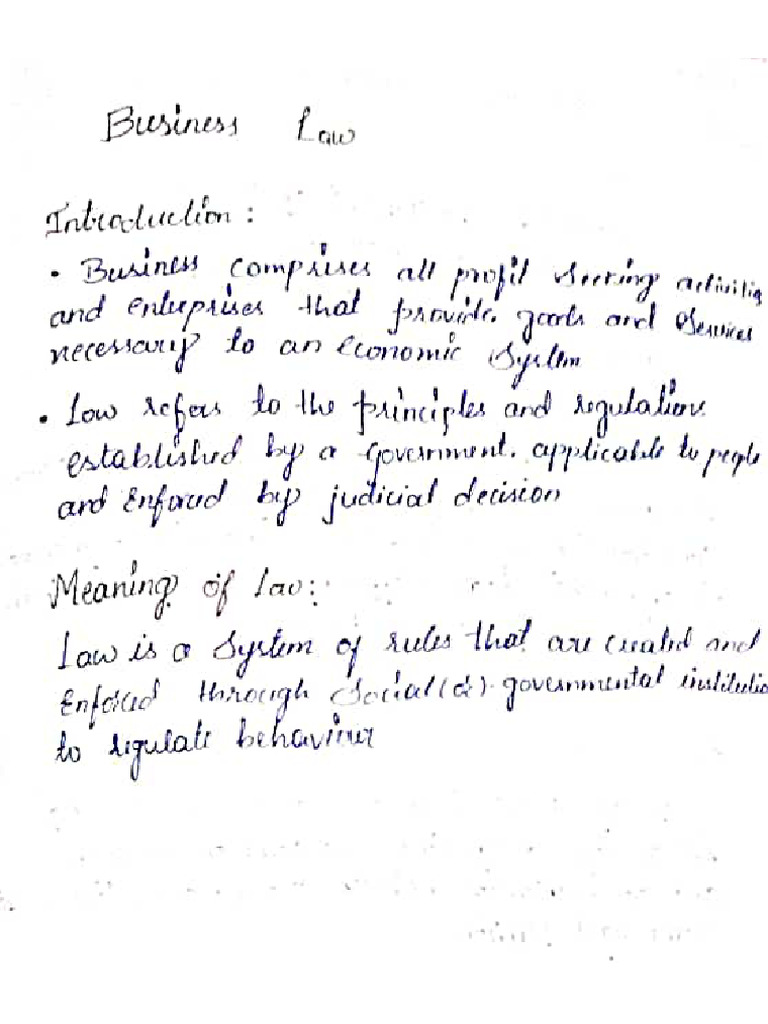 Business Law
Introduction :
• Business comprises all profit seeking activities
and enteprises that provide goods and services
necessary to an economic system
• Law refers to the principles and regulations
established by a government. applicable to people
and Enforced by judicial decision
Meaning of Law:
Law is a system of rules that are created and
Enforced through social (or) governmental institutio
to regulate behaviour